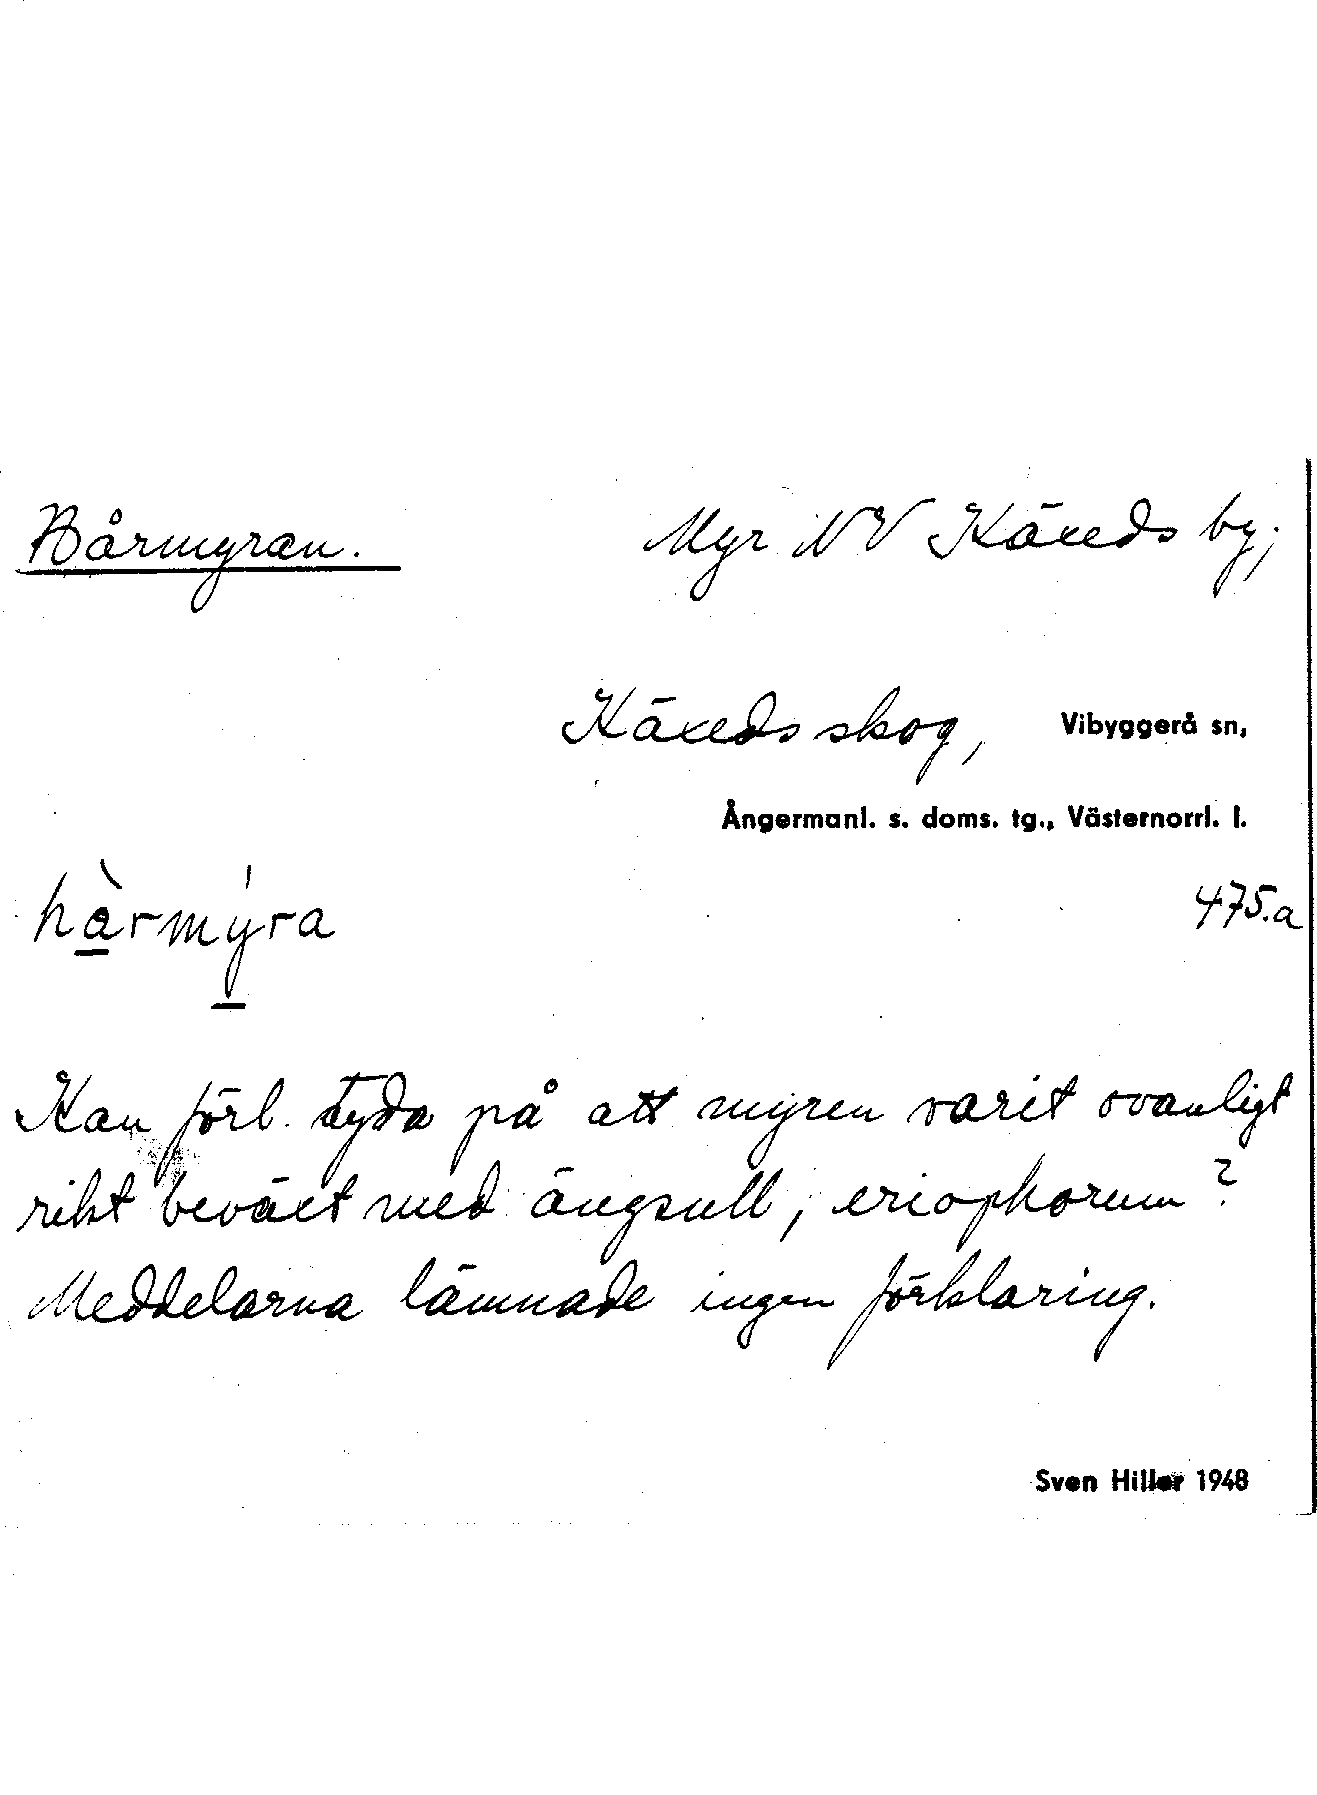 Hårmyran.
Myr NV Käxeds by;
Käxeds skog, Vibyggerå sn,
Ångermanl. s. doms. tg., Västernorrl. l.
hàrmýra
475.a
Kan förl. tyda på att myren varit ovanligt
rikt beväxt med ängsull, eriophorum?
Meddelarna lämnade ingen förklaring.
Sven Hiller 1948